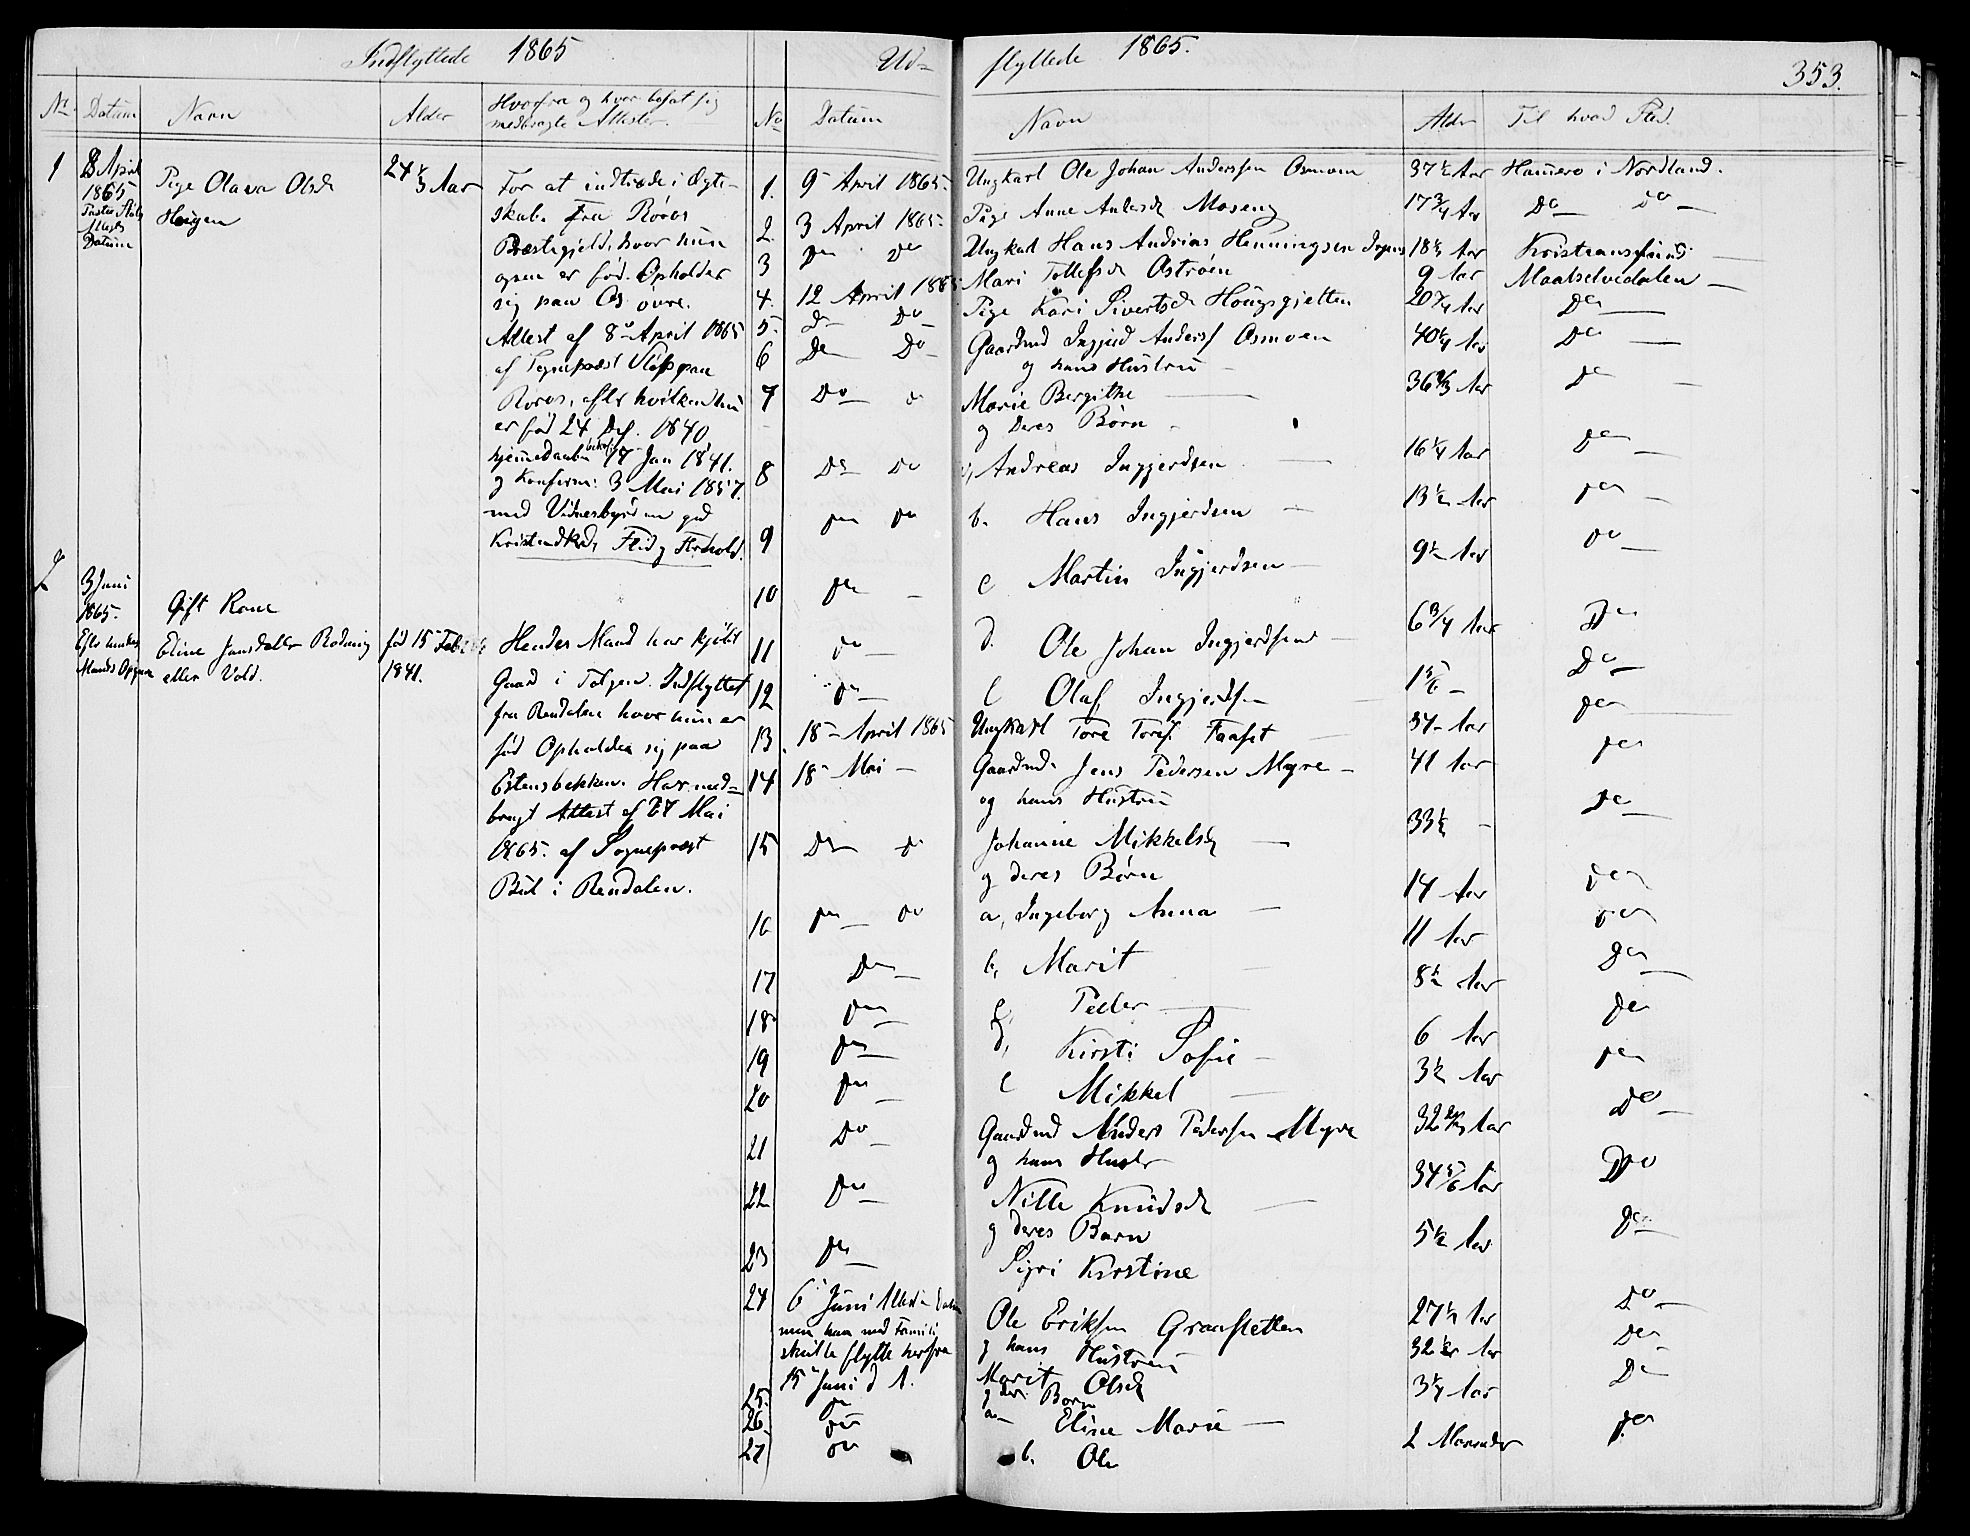 Indflyttede 1865
No Datum Navn Alder Hvorfra og hvor bosat sig
medbragte Attester.
1 8 April Pige Olava Olsd 24 1/3 Aar For at indtræde i Ægte-
1865 Haugen skab. Fra Røros
Attests Præstegjeld, hvor hun
Datum ogsaa er fød. Opholder
sig paa Os øvre.
Attest af 8de April 1865
af Sognepræst paa
Røros, efter hvilken hun
er fød 24 Dec. 1840
hjemmedøbt 17 Jan 1841.
og Konfirm: 3 Mai 1857.
med Vidnesbyrd m god
Kristendkds, Flid og Forhold.
2 3 Juni
1865. Gift Kone
Efter hendes Eline Jonsdatter Rodning fød 15 Feb Hendes Mand har kjøbt
Mands Opgave eller Vold. 1841. Gaard i Tolgen. Indflyttet
fra Rendalen hvor hun er
fød Opholder sig paa
Estensbækken. Har med-
bragt Attest af 27 Mai
1865. af Sognepræst
Bul i Rendalen.
Ud-flyttede 1865. 353.
No Datum Navn Alder Til hvad Sted.
1. 9 April 1865. Ungkarl Ole Johan Anderssen Osmoen 37 1/2 Aar Hamerø i Nordland.
2 3 April 1865. Pige Anne Andersd Moseng 17 3/4 Aar Do Do
3 Do Do Ungkarl Hans Andrias Henningsen 18 1/2 Aar Kristianssund
4. 12 April 1865 Mari Tollefsd Østrøen 9 Aar Maalselvedalen
5. Do Do Pige Kari Sivertsd Hougsgjelten 20 3/4 Aar Do
6 Do Do Gaardmd Ingjerd Anderss Osmoen 40 1/4 Aar Do
og hans Hustru
7 Do Do Marie Bergithe 36 2/3 Aar Do
og deres Børn
8 Do Do a, Andreas Ingjerdsen 16 1/4 Aar Do
9 Do Do b. Hans Ingjerdsen 13 1/2 Aar Do
10 Do c Martin Ingjerdsen 9 1/2 Aar Do
11 Do d. Ole Johan Ingjerdsen 6 3/4 Aar Do
12 Do e Olaf Ingjerdsen 1 5/6 Do
13. 18 April 1865 Ungkarl Tore Tores. Faaset 37 Aar Do
14 18 Mai Gaardmd. Jens Pedersen Myre 41 Aar Do
og hans Hustru
15 Do Do Johanne Mikkelsd 33 1/2 Do
og deres Børn
16 Do Do a, Ingeborg Anna 14 Aar Do
17 Do b, Marit 11 Aar Do
18 Do c, Peder 8 1/2 Aar Do
19 Do d, Kirsti Sofie 6 Aar Do
20 Do e Mikkel 3 1/2 Aar Do
21 Do Gaardmd Anders Pedersen Myre 32 Aar Do
og hans Hustr
22 Do Nille Knudsd 34 5/6 Aar Do
og deres Barn
23 Do Sigri Kirstine 5 1/2 Aar Do
24 6 Juni Attest Datum Ole Eriksen Graasletten 27 1/2 Aar Do
men han med Famili og hans Hustru
skulde flytte herfra
15 Juni d A.
25. Do Marit Olsd 32 1/2 Aar Do
og deres Børn
26 Do a Eline Marie 3 1/4 Aar Do
27 Do b. Ole 2 Maaneder Do